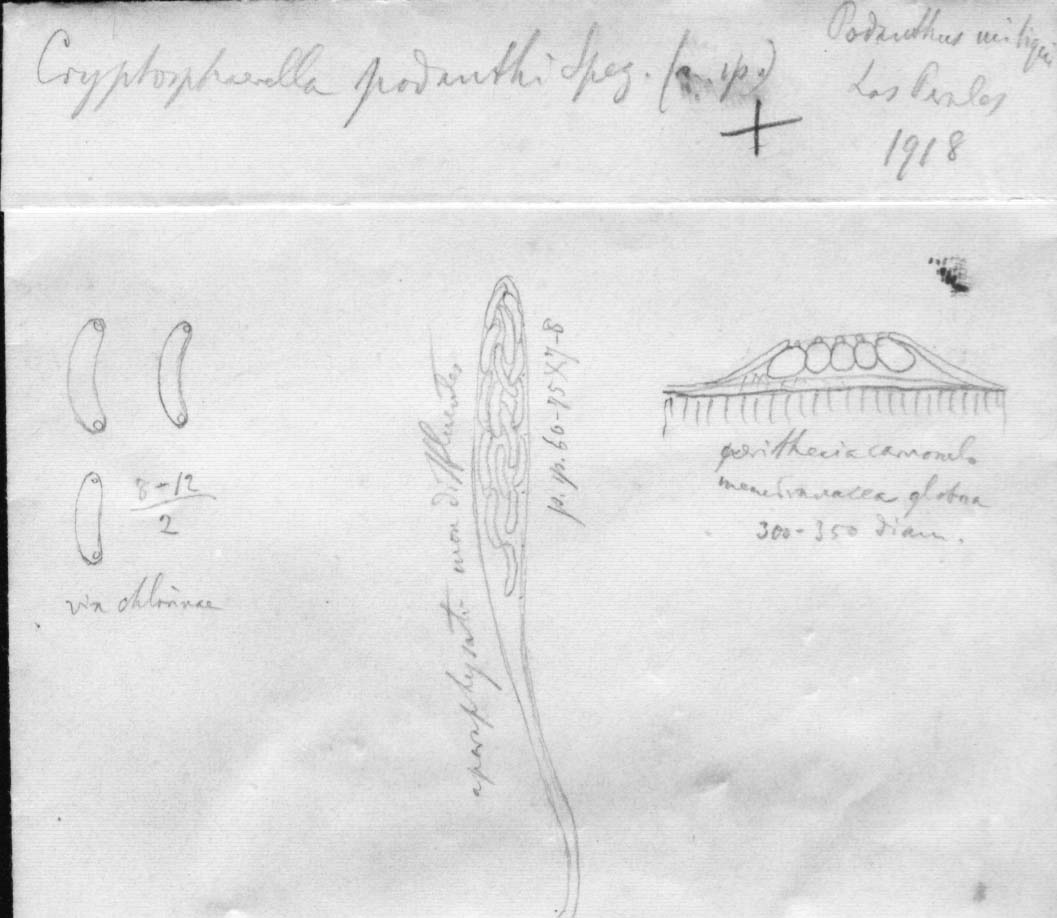 Cryptosphaerella podanthi Speg. (n. sp.)
Podanthus mitiqui
Los Perales
1918
8-12
2
vix chlorinae
aparaphysati non diffluentes
p. sp. 60-75X7-8
perithecia carnosulo
membranacea globosa
300-350 diam.